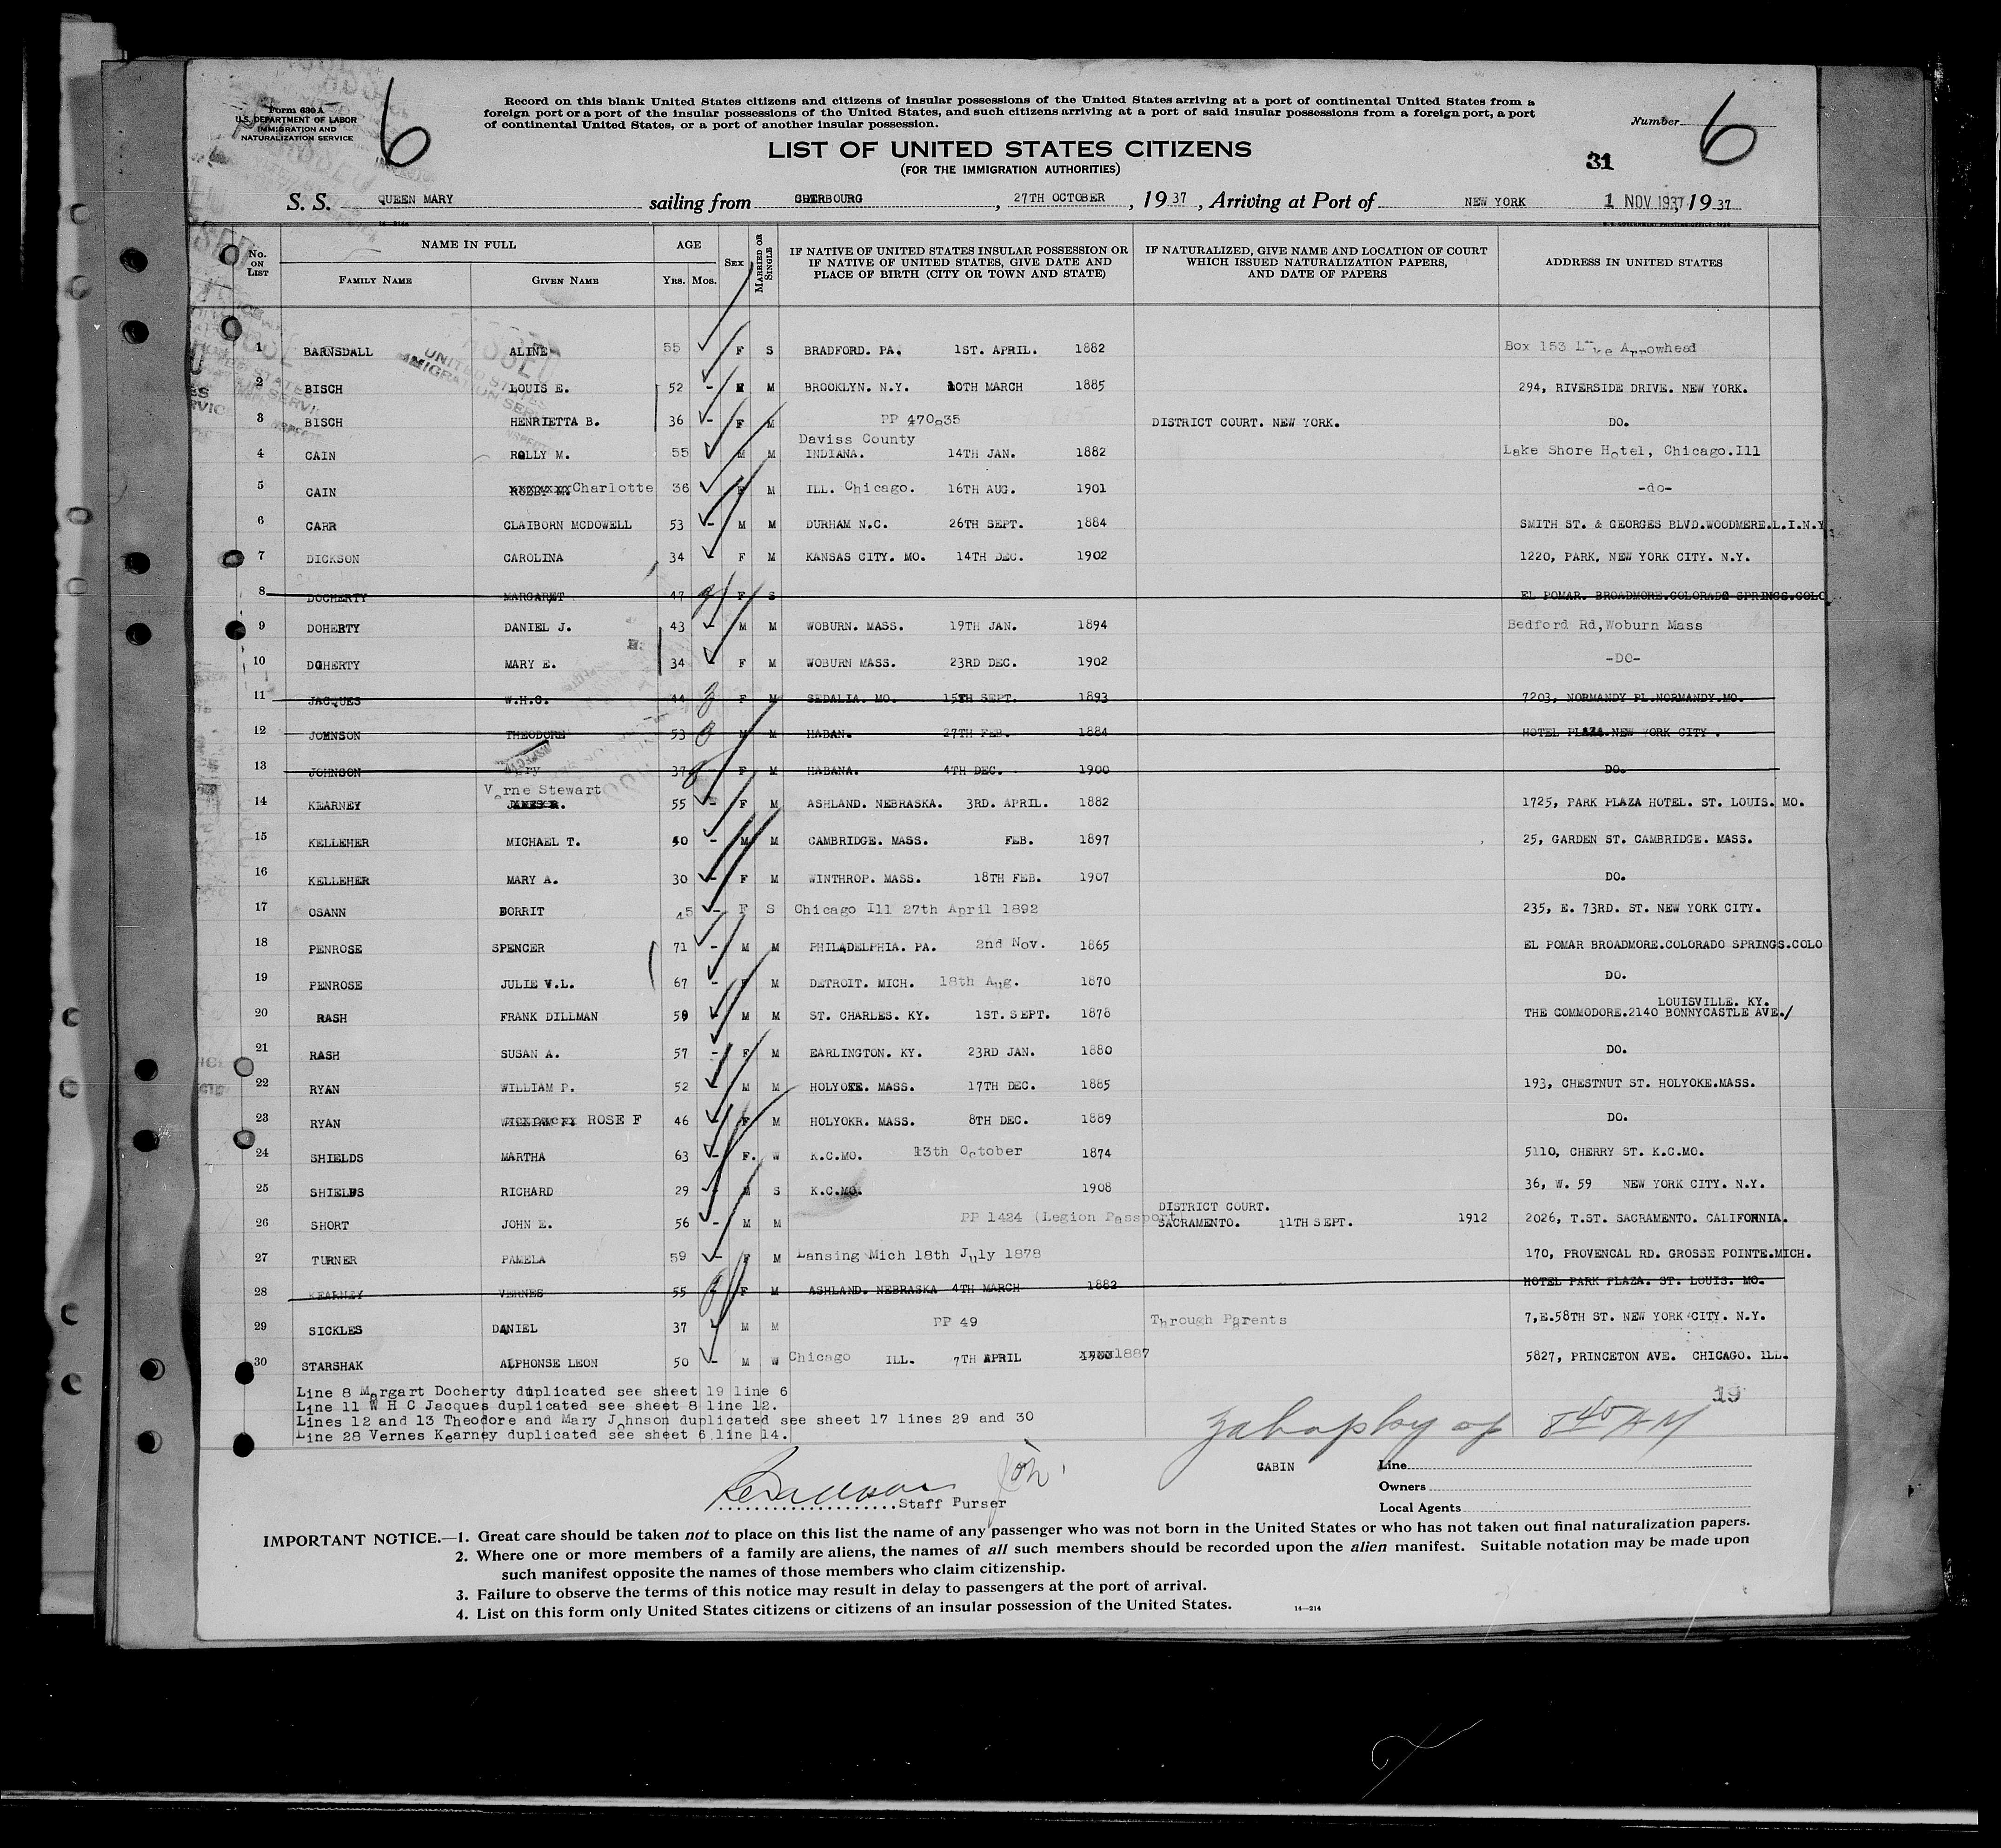 Form 630 A
U.S. DEPARTMENT OF LABOR
IMMIGRATION AND
NATURALIZATION SERVICE
6
Record on this blank United States citizens and citizens of insular possessions of the United States arriving at a port of continental United States from a
foreign port or a port of the insular possessions of the United States, and such citizens arriving at a port of said insular possessions from a foreign port, a port
of continental United States, or a port of another insular possession.
Number 6
LIST OF UNITED STATES CITIZENS
(FOR THE IMMIGRATION AUTHORITIES)
31
S. S. QUEEN MARY sailing from CHERBOURG, 27TH OCTOBER, 1937, Arriving at Port of NEW YORK 1 NOV 1937, 1937
No. ON LIST NAME IN FULL AGE SEX MARRIED OR SINGLE IF NATIVE OF UNITED STATES INSULAR POSSESSION OR IF NATIVE OF UNITED STATES, GIVE DATE AND PLACE OF BIRTH (CITY OR TOWN AND STATE) IF NATURALIZED, GIVE NAME AND LOCATION OF COURT WHICH ISSUED NATURALIZATION PAPERS, AND DATE OF PAPERS ADDRESS IN UNITED STATES
FAMILY NAME GIVEN NAME YRS. MOS.
1 BARNSDALL ALINE 55 F S BRADFORD. PA. 1ST. APRIL. 1882 Box 153 Lake Arrowhead
2 BISCH LOUIS E. 52 - M M BROOKLYN. N.Y. 10TH MARCH 1885 294, RIVERSIDE DRIVE. NEW YORK.
3 BISCH HENRIETTA B. 36 - F M PP 470835 DISTRICT COURT. NEW YORK. DO.
Daviss County
4 CAIN ROLLY M. 55 M M INDIANA. 14TH JAN. 1882 Lake Shore Hotel, Chicago.Ill
5 CAIN Charlotte 36 F M ILL. Chicago. 16TH AUG. 1901 -do-
6 CARR CLAIBORN MCDOWELL 53 - M M DURHAM N.C. 26TH SEPT. 1884 SMITH ST. & GEORGES BLVD.WOODMERE.L.I.N.Y.
7 DICKSON CAROLINA 34 - F M KANSAS CITY. MO. 14TH DEC. 1902 1220, PARK, NEW YORK CITY. N.Y.
8 DOCHERTY MARGARET 47 F S EL POMAR. BROADMORE.COLORADO SPRINGS.COLO
9 DOHERTY DANIEL J. 43 - M M WOBURN. MASS. 19TH JAN. 1894 Bedford Rd,Woburn Mass
10 DOHERTY MARY E. 34 - F M WOBURN MASS. 23RD DEC. 1902 -DO-
11 JACQUES W.H.C. 44 F M SEDALIA. MO. 15TH SEPT. 1893 7203, NORMANDY PL.NORMANDY.MO.
12 JOHNSON THEODORE 53 M M HABAN. 27TH FEB. 1884 HOTEL PLAZA.NEW YORK CITY .
13 JOHNSON Mary 37 - F M HABANA. 4TH DEC. 1900 DO.
Verne Stewart
14 KEARNEY JAMES R. 55 - F M ASHLAND. NEBRASKA. 3RD. APRIL. 1882 1725, PARK PLAZA HOTEL. ST. LOUIS. MO.
15 KELLEHER MICHAEL T. 40 - M M CAMBRIDGE. MASS. FEB. 1897 25, GARDEN ST. CAMBRIDGE. MASS.
16 KELLEHER MARY A. 30 - F M WINTHROP. MASS. 18TH FEB. 1907 DO.
17 OSANN DORRIT 45 - F S Chicago Ill 27th April 1892 235, E. 73RD. ST. NEW YORK CITY.
18 PENROSE SPENCER 71 - M M PHILADELPHIA. PA. 2nd Nov. 1865 EL POMAR BROADMORE.COLORADO SPRINGS.COLO
19 PENROSE JULIE V.L. 67 - F M DETROIT. MICH. 18th Aug. 1870 DO.
LOUISVILLE. KY.
20 RASH FRANK DILLMAN 59 - M M ST. CHARLES. KY. 1ST. SEPT. 1878 THE COMMODORE.2140 BONNYCASTLE AVE./
21 RASH SUSAN A. 57 - F M EARLINGTON. KY. 23RD JAN. 1880 DO.
22 RYAN WILLIAM P. 52 - M M HOLYOKE. MASS. 17TH DEC. 1885 193, CHESTNUT ST. HOLYOKE.MASS.
23 RYAN ROSE F 46 - F M HOLYOKR. MASS. 8TH DEC. 1889 DO.
24 SHIELDS MARTHA 63 - F. W K.C.MO. 13th October 1874 5110, CHERRY ST. K.C.MO.
25 SHIELDS RICHARD 29 - M S K.C.MO. 1908 36, W. 59 NEW YORK CITY. N.Y.
DISTRICT COURT.
26 SHORT JOHN E. 56 - M M PP 1424 (Legion Passport) SACRAMENTO. 11TH SEPT. 1912 2026, T.ST. SACRAMENTO. CALIFORNIA.
27 TURNER PAMELA 59 - F M Lansing Mich 18th July 1878 170, PROVENCAL RD. GROSSE POINTE.MICH.
28 KEARNEY VERNES 55 F M ASHLAND. NEBRASKA 4TH MARCH 1882 HOTEL PARK PLAZA. ST. LOUIS. MO.
29 SICKLES DANIEL 37 - M M PP 49 Through Parents 7,E.58TH ST. NEW YORK CITY. N.Y.
30 STARSHAK ALPHONSE LEON 50 - M W Chicago ILL. 7TH APRIL 1887 5827, PRINCETON AVE. CHICAGO. ILL.
Line 8 Margart Docherty duplicated see sheet 19 line 6
Line 11 W H C Jacques duplicated see sheet 8 line 12.
Lines 12 and 13 Theodore and Mary Johnson duplicated see sheet 17 lines 29 and 30
Line 28 Vernes Kearney duplicated see sheet 6 line 14.
19
8 40 AM
Staff Purser
CABIN
Line
Owners
Local Agents
IMPORTANT NOTICE.—1. Great care should be taken not to place on this list the name of any passenger who was not born in the United States or who has not taken out final naturalization papers.
2. Where one or more members of a family are aliens, the names of all such members should be recorded upon the alien manifest. Suitable notation may be made upon
such manifest opposite the names of those members who claim citizenship.
3. Failure to observe the terms of this notice may result in delay to passengers at the port of arrival.
4. List on this form only United States citizens or citizens of an insular possession of the United States.
14—214